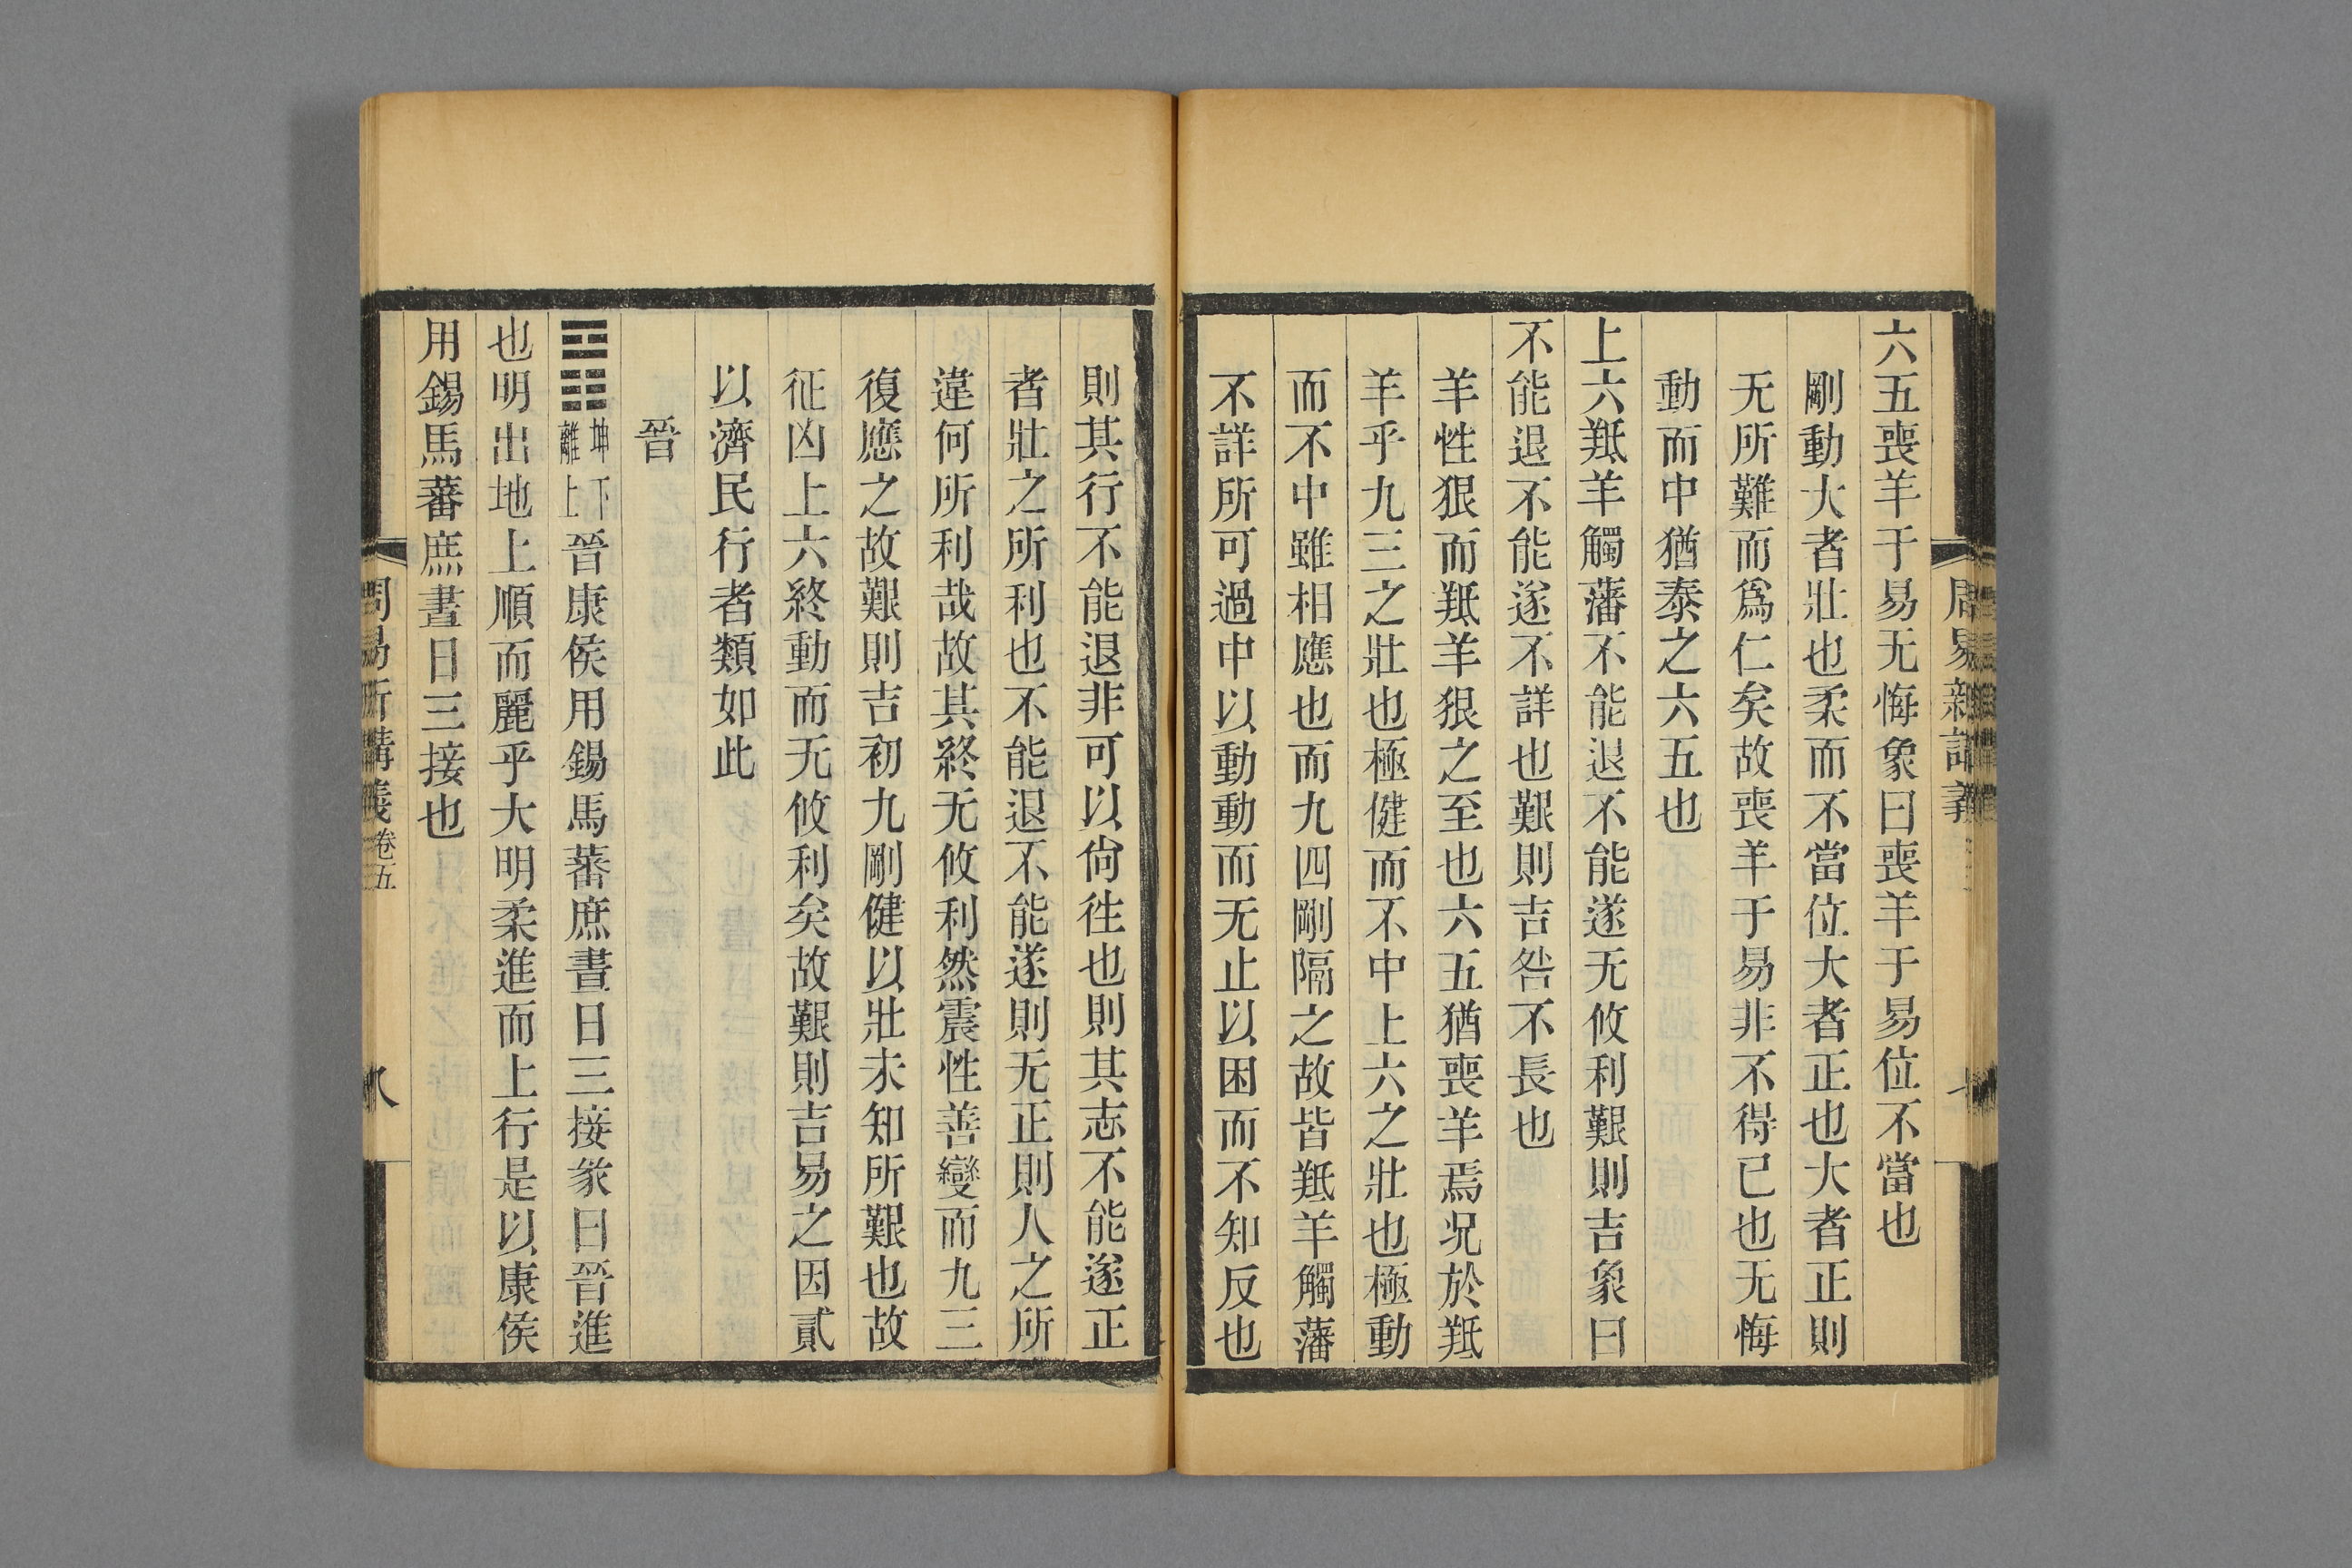 六五喪羊于易无悔象曰喪羊于易位不當也
剛動大者壯也柔而不當位大者正也大者正則
无所難而爲仁矣故喪羊于易非不得已也无悔
動而中猶泰之六五也
上六羝羊觸藩不能退不能遂无攸利艱則吉象曰
不能退不能遂不詳也艱則吉咎不長也
羊性狠而羝羊狠之至也六五猶喪羊焉況於羝
羊乎九三之壯也極健而不中上六之壯也極動
而不中雖相應也而九四剛隔之故皆羝羊觸藩
不詳所可過中以動動而无止以困而不知反也
則其行不能退非可以尙往也則其志不能遂正
者壯之所利也不能退不能遂則无正則人之所
違何所利哉故其終无攸利然震性善變而九三
復應之故艱則吉初九剛健以壯未知所艱也故
征凶上六終動而无攸利矣故艱則吉易之因貳
以濟民行者類如此
晉
䷢坤下離上晉康侯用錫馬蕃庶晝日三接彖曰晉進
也明出地上順而麗乎大明柔進而上行是以康侯
用錫馬蕃庶晝日三接也
周易新講義 卷五 八